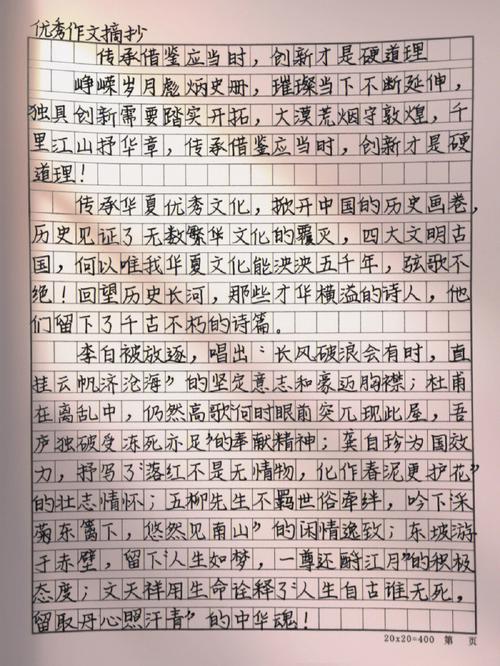 优秀作文摘抄
传承借鉴应当时，创新才是硬道理
峥嵘岁月彪炳史册，璀璨当下不断延伸，
独具创新需要踏实开拓，大漠荒烟守敦煌，千
里江山抒华章，传承借鉴应当时，创新才是硬
道理！
传承华夏优秀文化，掀开中国的历史画卷，
历史见证了无数繁华文化的覆灭，四大文明古
国，何以唯我华夏文化能泱泱五千年，弦歌不
绝！回望历史长河，那些才华横溢的诗人，他
们留下了千古不朽的诗篇。
李白被放逐，唱出“长风破浪会有时，直
挂云帆济沧海”的坚定意志和豪迈胸襟；杜甫
在离乱中，仍然高歌“何时眼前突兀现此屋，吾
庐独破受冻死亦足”的奉献精神；龚自珍为国效
力，抒写了“落红不是无情物，化作春泥更护花”
的壮志情怀；五柳先生不羁世俗牵绊，吟下“采
菊东篱下，悠然见南山”的闲情逸致；东坡游
于赤壁，留下“人生如梦，一尊还酹江月”的积极
态度；文天祥用生命诠释了“人生自古谁无死，
留取丹心照汗青”的中华魂！
20×20=400 第 页